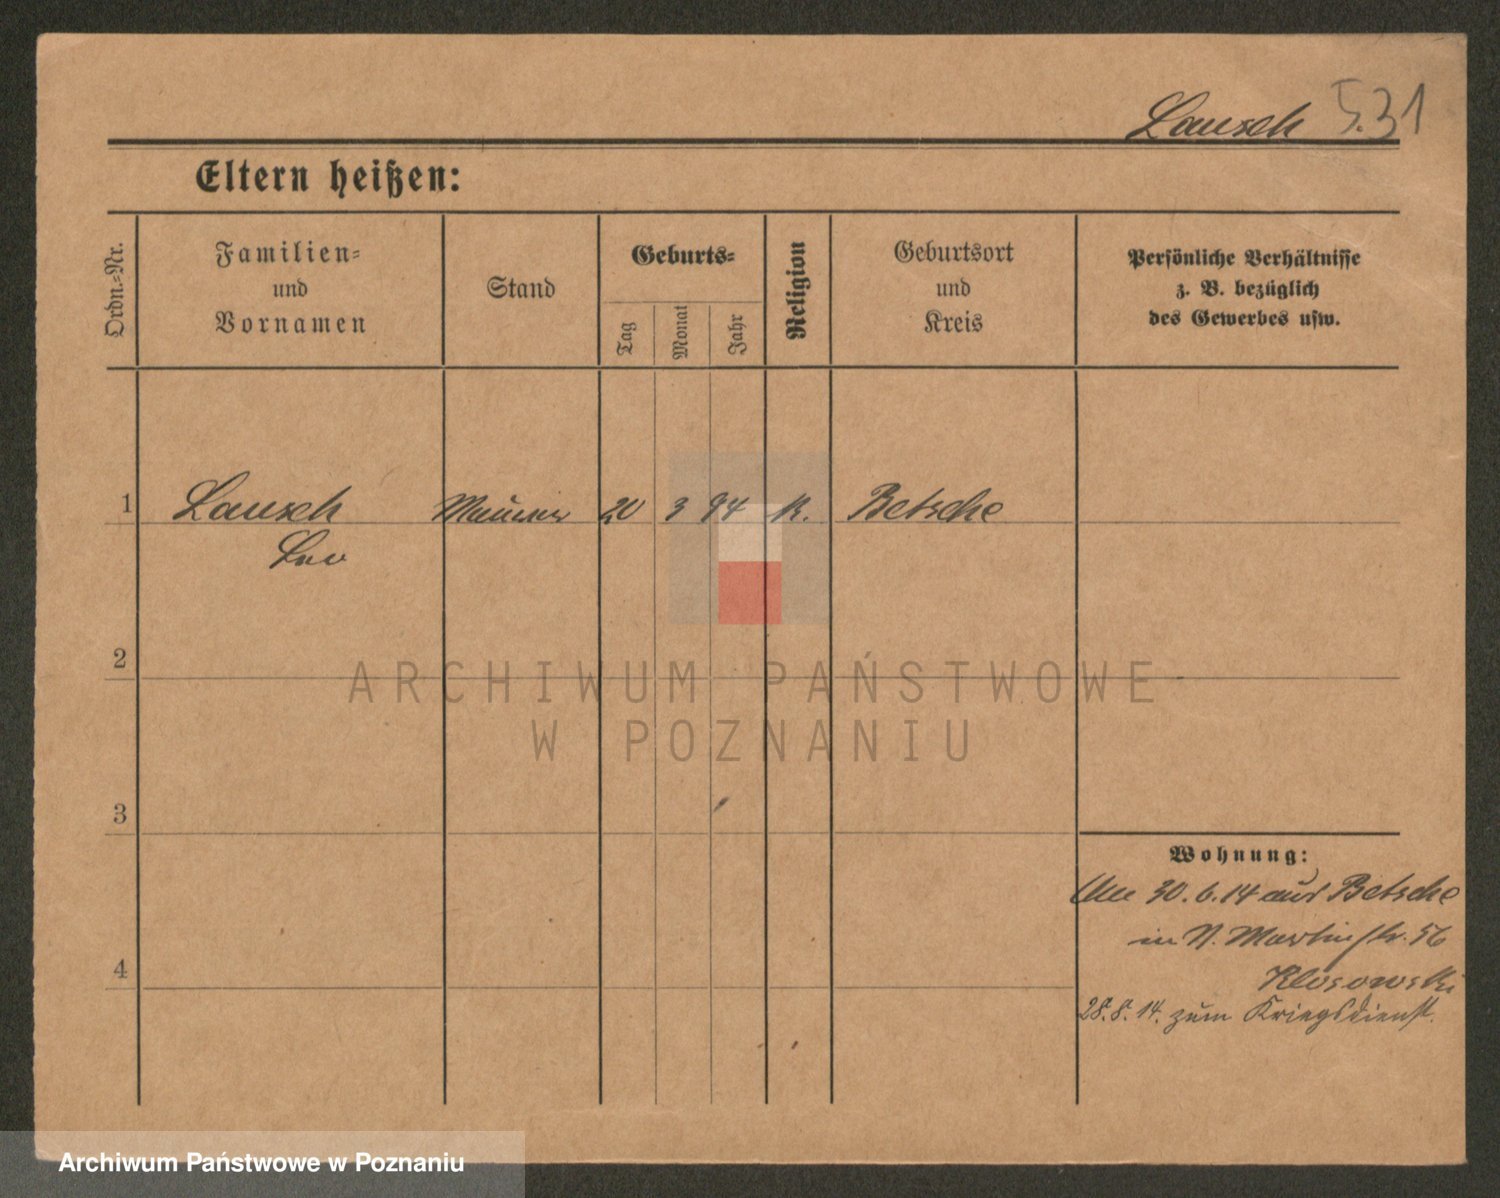 Lausch 5.31
Eltern heißen:
Ordn.-Nr.
Familien-
und
Vornamen
Stand
Geburts-
Tag
Monat
Jahr
Religion
Geburtsort
und
Kreis
Persönliche Verhältnisse
z. B. bezüglich
des Gewerbes usw.
1 Lausch Maurer 20 3 94 K. Betsche
Leo
2
ARCHIWUM PAŃSTWOWE
W POZNANIU
3
Wohnung:
30.6.14 aus Betsche
in N. Martinstr. 56
4
Klosowski
28.8.14. zum Kriegsdienst.
Archiwum Państwowe w Poznaniu